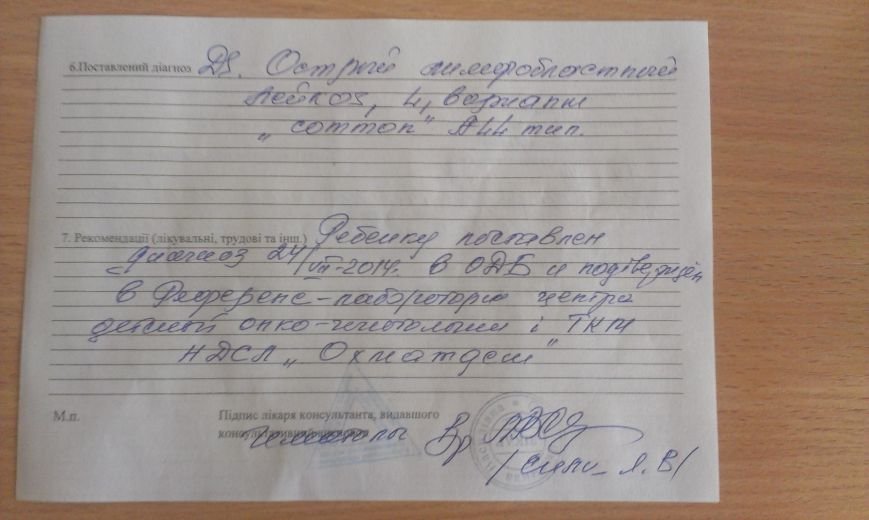 6.Поставлений діагноз DS. Острый лимфобластный
лейкоз, L1, вариант
„common" тип.
7. Рекомендації (лікувальні, трудові та інш.) Ребенку поставлен
диагноз 24/VII-2014г. в ОДБ и подтвержден
в Референс-лаборатории центра
детской онко-гематологии і ТКМ
НДСЛ „Охматдет"
М.п. Підпис лікаря консультанта, видавшого
консультативний Вр